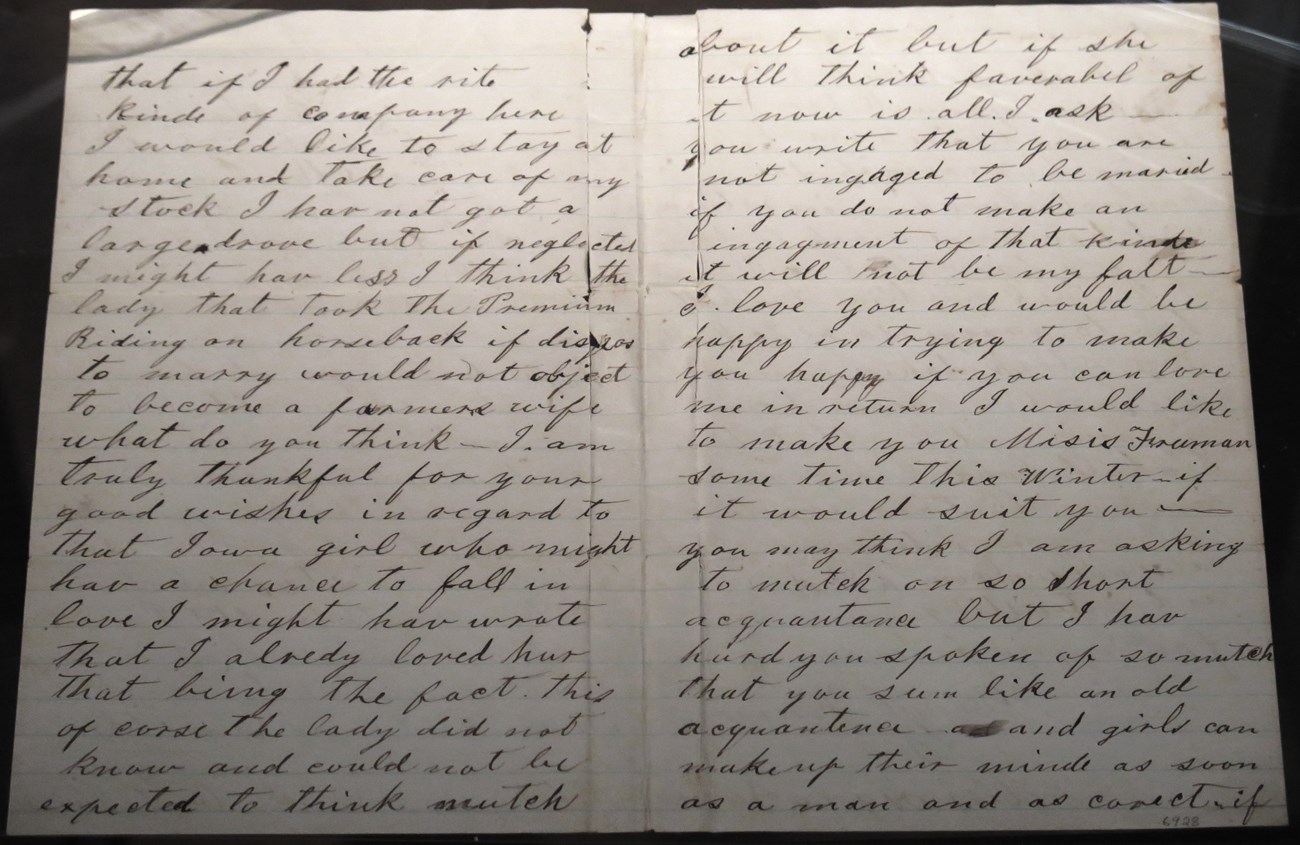 that if I had the rite
kinde of company here
I would like to stay at
home and take care of my
stock I hav not got a
large drove but if neglected
I might hav less I think the
lady that took the Premium
Riding on horseback if dispos
to marry would not object
to become a farmers wife
what do you think — I am
truly thankful for your
good wishes in regard to
that Iowa girl who might
hav a chance to fall in
love I might hav wrote
that I alredy loved hur
that bieng the fact. this
of corse the lady did not
know and could not be
expected to think mutch
about it but if she
will think faverabel of
it now is all I ask —
you write that you are
not ingaged to be maried
if you do not make an
ingagment of that kinde
it will not be my falt —
I love you and would be
happy in trying to make
you happy if you can love
me in return I would like
to make you Misis Freeman
some time this Winter — if
it would suit you —
you may think I am asking
to mutch on so short
acquantance but I hav
hurd you spoken of so mutch
that you seem like an old
acquantence and girls can
make up their minde as soon
as a man and as corect — if
6928